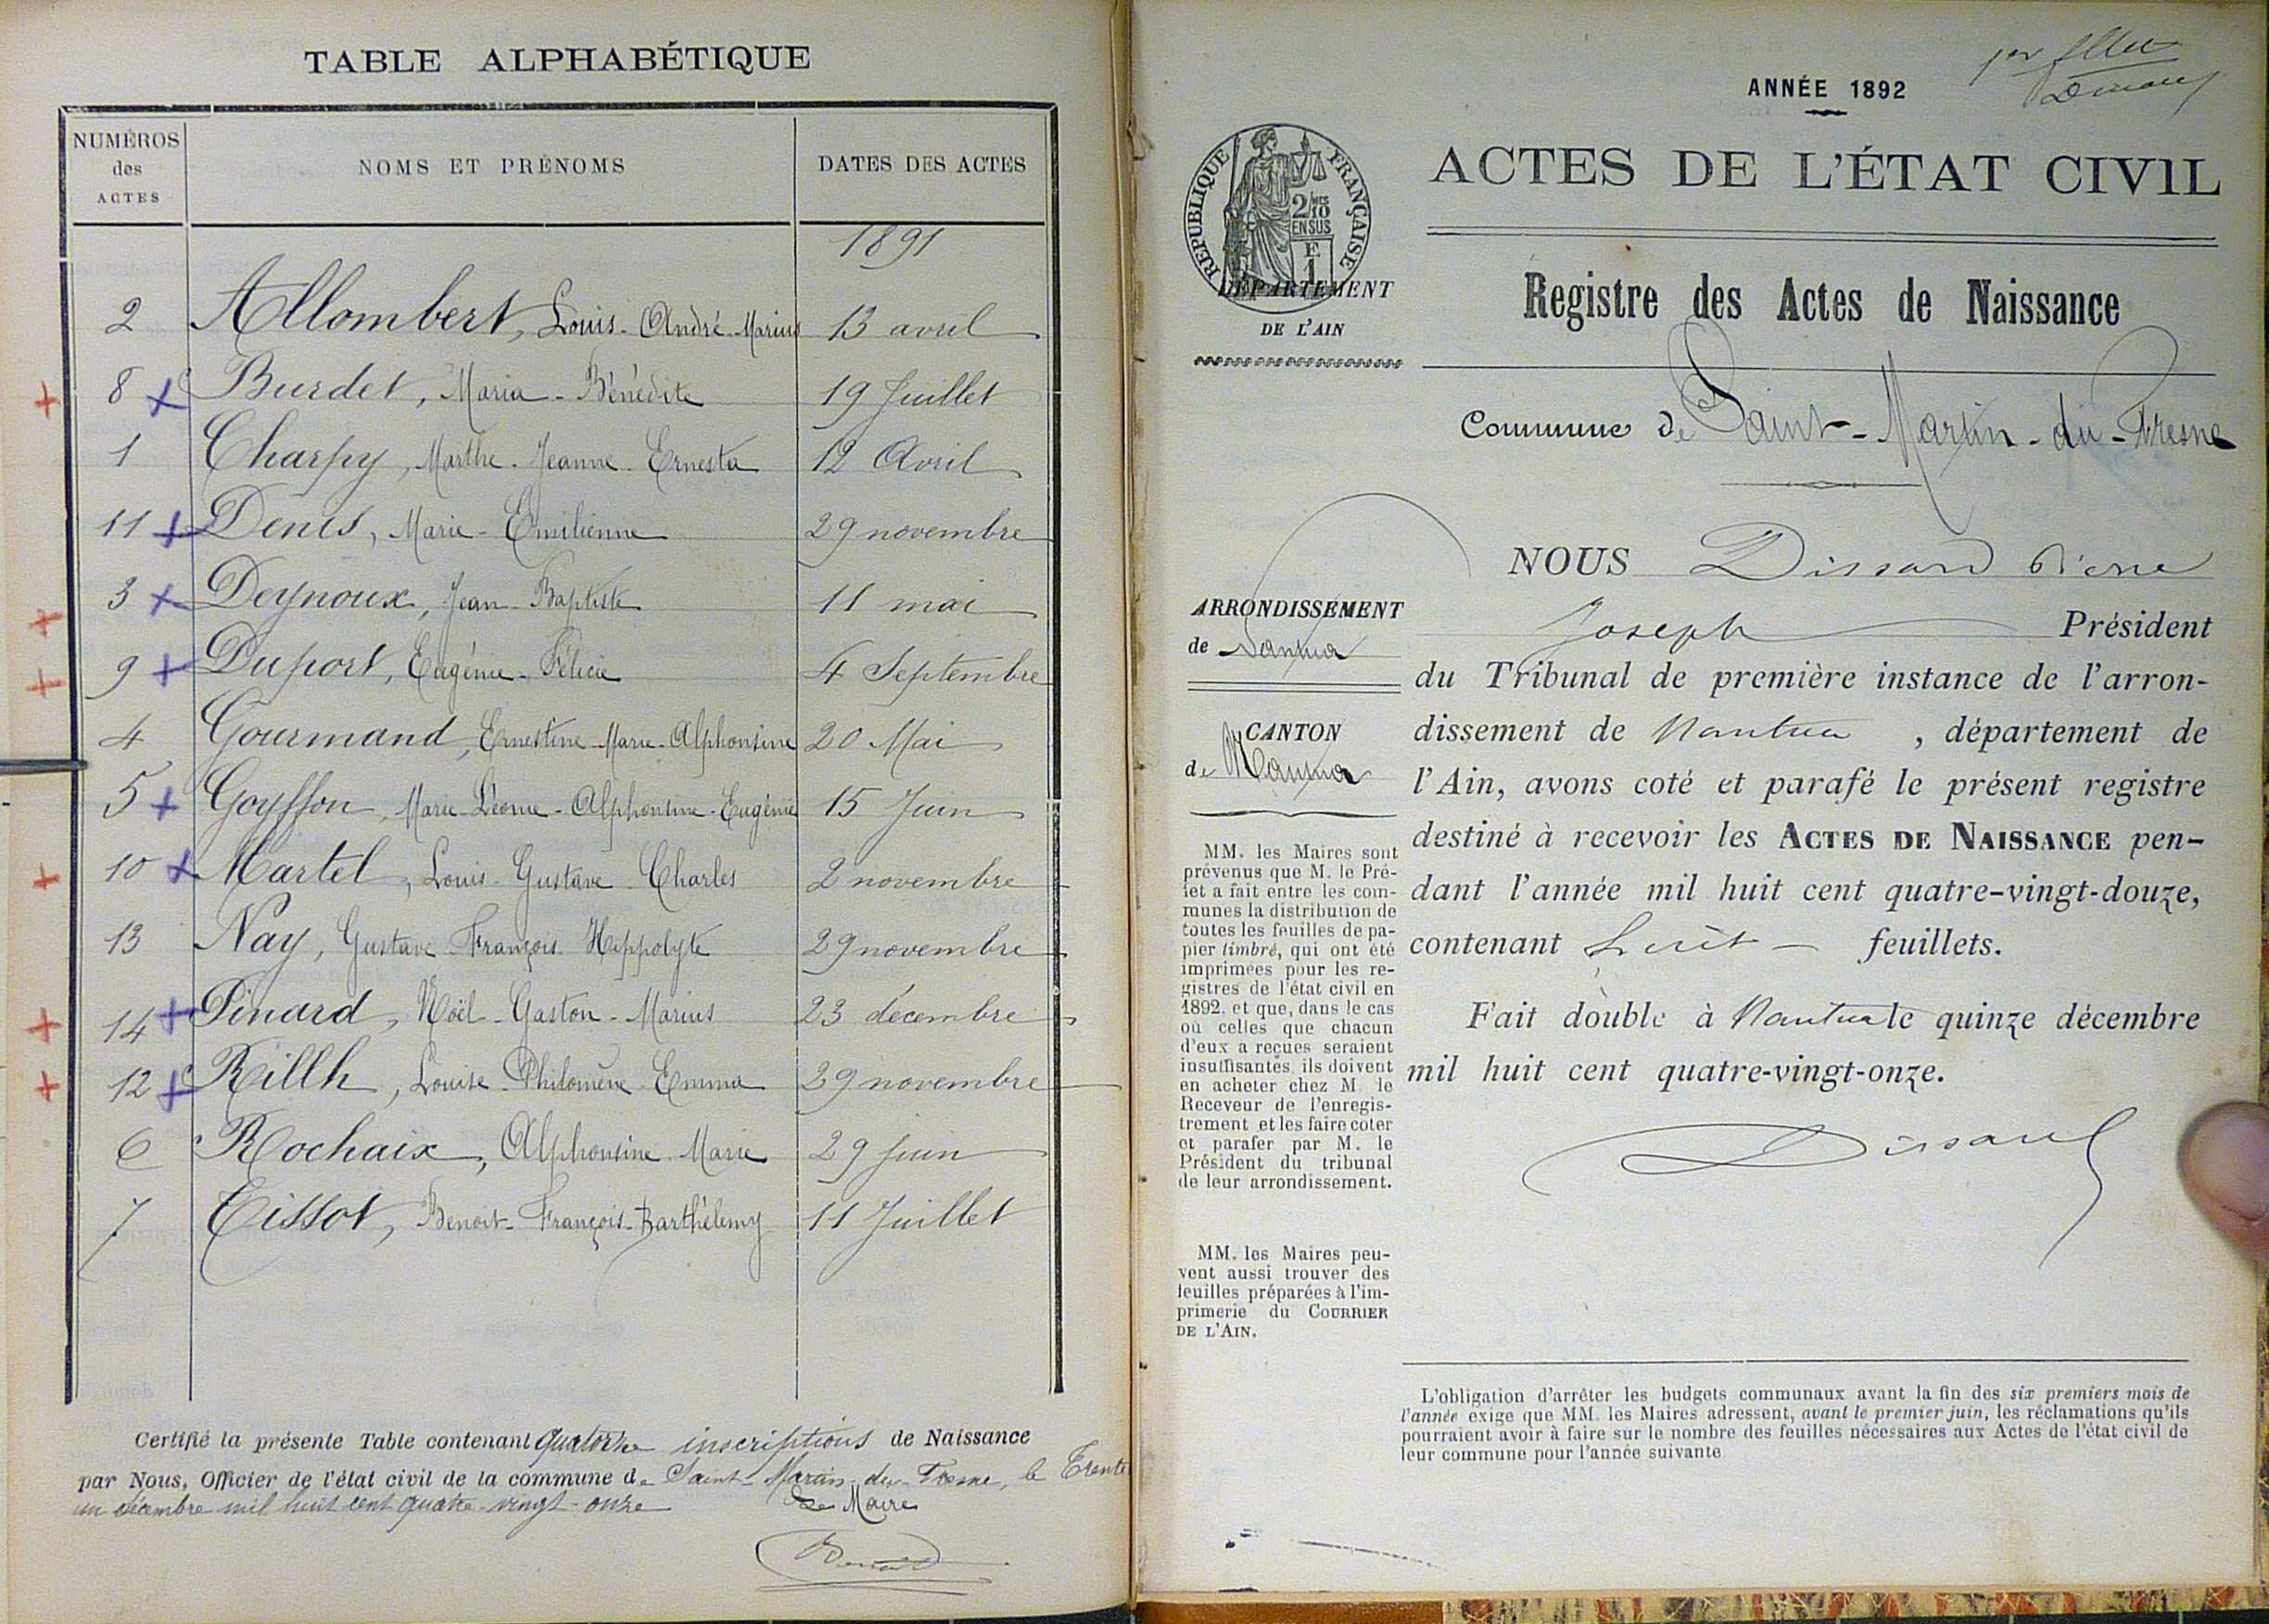 TABLE ALPHABÉTIQUE
NUMÉROS des ACTES NOMS ET PRÉNOMS DATES DES ACTES
1891
2 Allombert, Louis-André-Marius 13 avril
8 Burdet, Maria-Bénédite 19 Juillet
1 Charpy, Marthe-Jeanne-Ernesta 12 Avril
11 Denis, Marie-Emilienne 29 novembre
3 Deynoux, Jean-Baptiste 11 mai
9 Duport, Eugénie-Félicie 4 Septembre
4 Gourmand, Ernestine-Marie-Alphonsine 20 Mai
5 Goyffon, Marie-Léonie-Alphonsine-Eugénie 15 Juin
10 Martel, Louis-Gustave-Charles 2 novembre
13 Nay, Gustave-François-Hippolyte 29 novembre
14 Pinard, Noël-Gaston-Marius 23 décembre
12 Rillh, Louise-Philomène-Emma 29 novembre
6 Rochaix, Alphonsine-Marie 29 juin
7 Tissot, Benoit-François-Barthélemy 11 Juillet
Certifié la présente Table contenant quatorze inscriptions de Naissance
par Nous, Officier de l'état civil de la commune de Saint-Martin-du-Fresne, le Trente
un décembre mil huit cent quatre-vingt-onze Le Maire
Benoit
1er fllet
Dissard
ANNÉE 1892
ACTES DE L'ÉTAT CIVIL
RÉPUBLIQUE FRANÇAISE
2/10 MES
EN SUS
E
1
DÉPARTEMENT
DE L'AIN
Registre des Actes de Naissance
Commune de Saint-Martin-du-Fresne
ARRONDISSEMENT
de Nantua
CANTON
de Nantua
MM. les Maires sont
prévenus que M. le Pré-
fet a fait entre les com-
munes la distribution de
toutes les feuilles de pa-
pier timbré, qui ont été
imprimées pour les re-
gistres de l'état civil en
1892. et que, dans le cas
où celles que chacun
d'eux a reçues seraient
insuffisantes, ils doivent
en acheter chez M. le
Receveur de l'enregis-
trement et les faire coter
et parafer par M. le
Président du tribunal
de leur arrondissement.
MM. les Maires peu-
vent aussi trouver des
feuilles préparées à l'im-
primerie du COURRIER
DE L'AIN.
NOUS Dissard Pierre
Joseph Président
du Tribunal de première instance de l'arron-
dissement de Nantua, département de
l'Ain, avons coté et parafé le présent registre
destiné à recevoir les ACTES DE NAISSANCE pen-
dant l'année mil huit cent quatre-vingt-douze,
contenant huit feuillets.
Fait double à Nantua le quinze décembre
mil huit cent quatre-vingt-onze.
Dissard
L'obligation d'arrêter les budgets communaux avant la fin des six premiers mois de
l'année exige que MM. les Maires adressent, avant le premier juin, les réclamations qu'ils
pourraient avoir à faire sur le nombre des feuilles nécessaires aux Actes de l'état civil de
leur commune pour l'année suivante